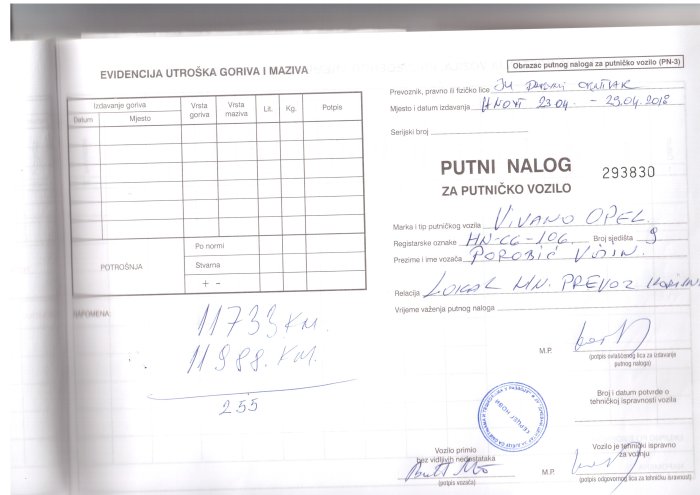 EVIDENCIJA UTROŠKA GORIVA I MAZIVA
Izdavanje goriva
Datum
Mjesto
Vrsta goriva
Vrsta maziva
Lit.
Kg.
Potpis
POTROŠNJA
Po normi
Stvarna
+ -
NAPOMENA:
11733 KM.
11988. KM.
255
Vozilo primio
bez vidljivih nedostataka
(potpis vozača)
Obrazac putnog naloga za putničko vozilo (PN-3)
Prevoznik, pravno ili fizičko lice JU DNEVNI CENTAR
Mjesto i datum izdavanja H NOVI 23.04. - 29.04.2018
Serijski broj
PUTNI NALOG
ZA PUTNIČKO VOZILO
293830
Marka i tip putničkog vozila VIVANO OPEL
Registarske oznake HN-CG-106. Broj sjedišta 9
Prezime i ime vozača POROBIĆ
Relacija LOKAL HN. PREVOZ
Vrijeme važenja putnog naloga
M.P.
(potpis ovlašćenog lica za izdavanje
putnog naloga)
Broj i datum potvrde o
tehničkoj ispravnosti vozila
Vozilo je tehnički ispravno
za vožnju
M.P.
(potpis odgovornog lica za tehničku ispravnost)